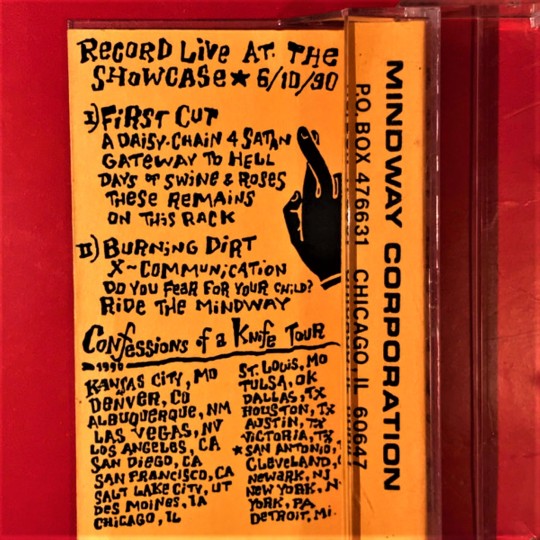 RECORD LiVE AT THE
SHOWCASE ★ 6/10/90
I) FiRST CUT
A DAiSY-CHAiN 4 SATAN
GATEWAY TO HELL
DAYS OF SWiNE & ROSES
THESE REMAiNS
ON THiS RACK
II) BURNiNG DiRT
X~COMMUNiCATiON
DO YOU FEAR FOR YOUR CHiLD?
RiDE THE MiNDWAY
Confessions of a Knife TOUR
1990
KANSAS CiTY, MO
DENVER, CO
ALBUQUERQUE, NM
LAS VEGAS, NV
LOS ANGELES, CA
SAN DiEGO, CA
SAN FRANCiSCO, CA
SALT LAKE CiTY, UT
DES MOiNES, IA
CHiCAGO, IL
ST. LOUiS, MO
TULSA, OK
DALLAS, TX
HOUSTON, TX
AUSTiN, TX
ViCTORiA, TX
★SAN ANTONiO,
CLEVELAND,
NEWARK, NJ
NEW YORK, N
YORK, PA
DETROiT, Mi.
MINDWAY CORPORATION
P.O. BOX 476631 CHICAGO, IL 60647